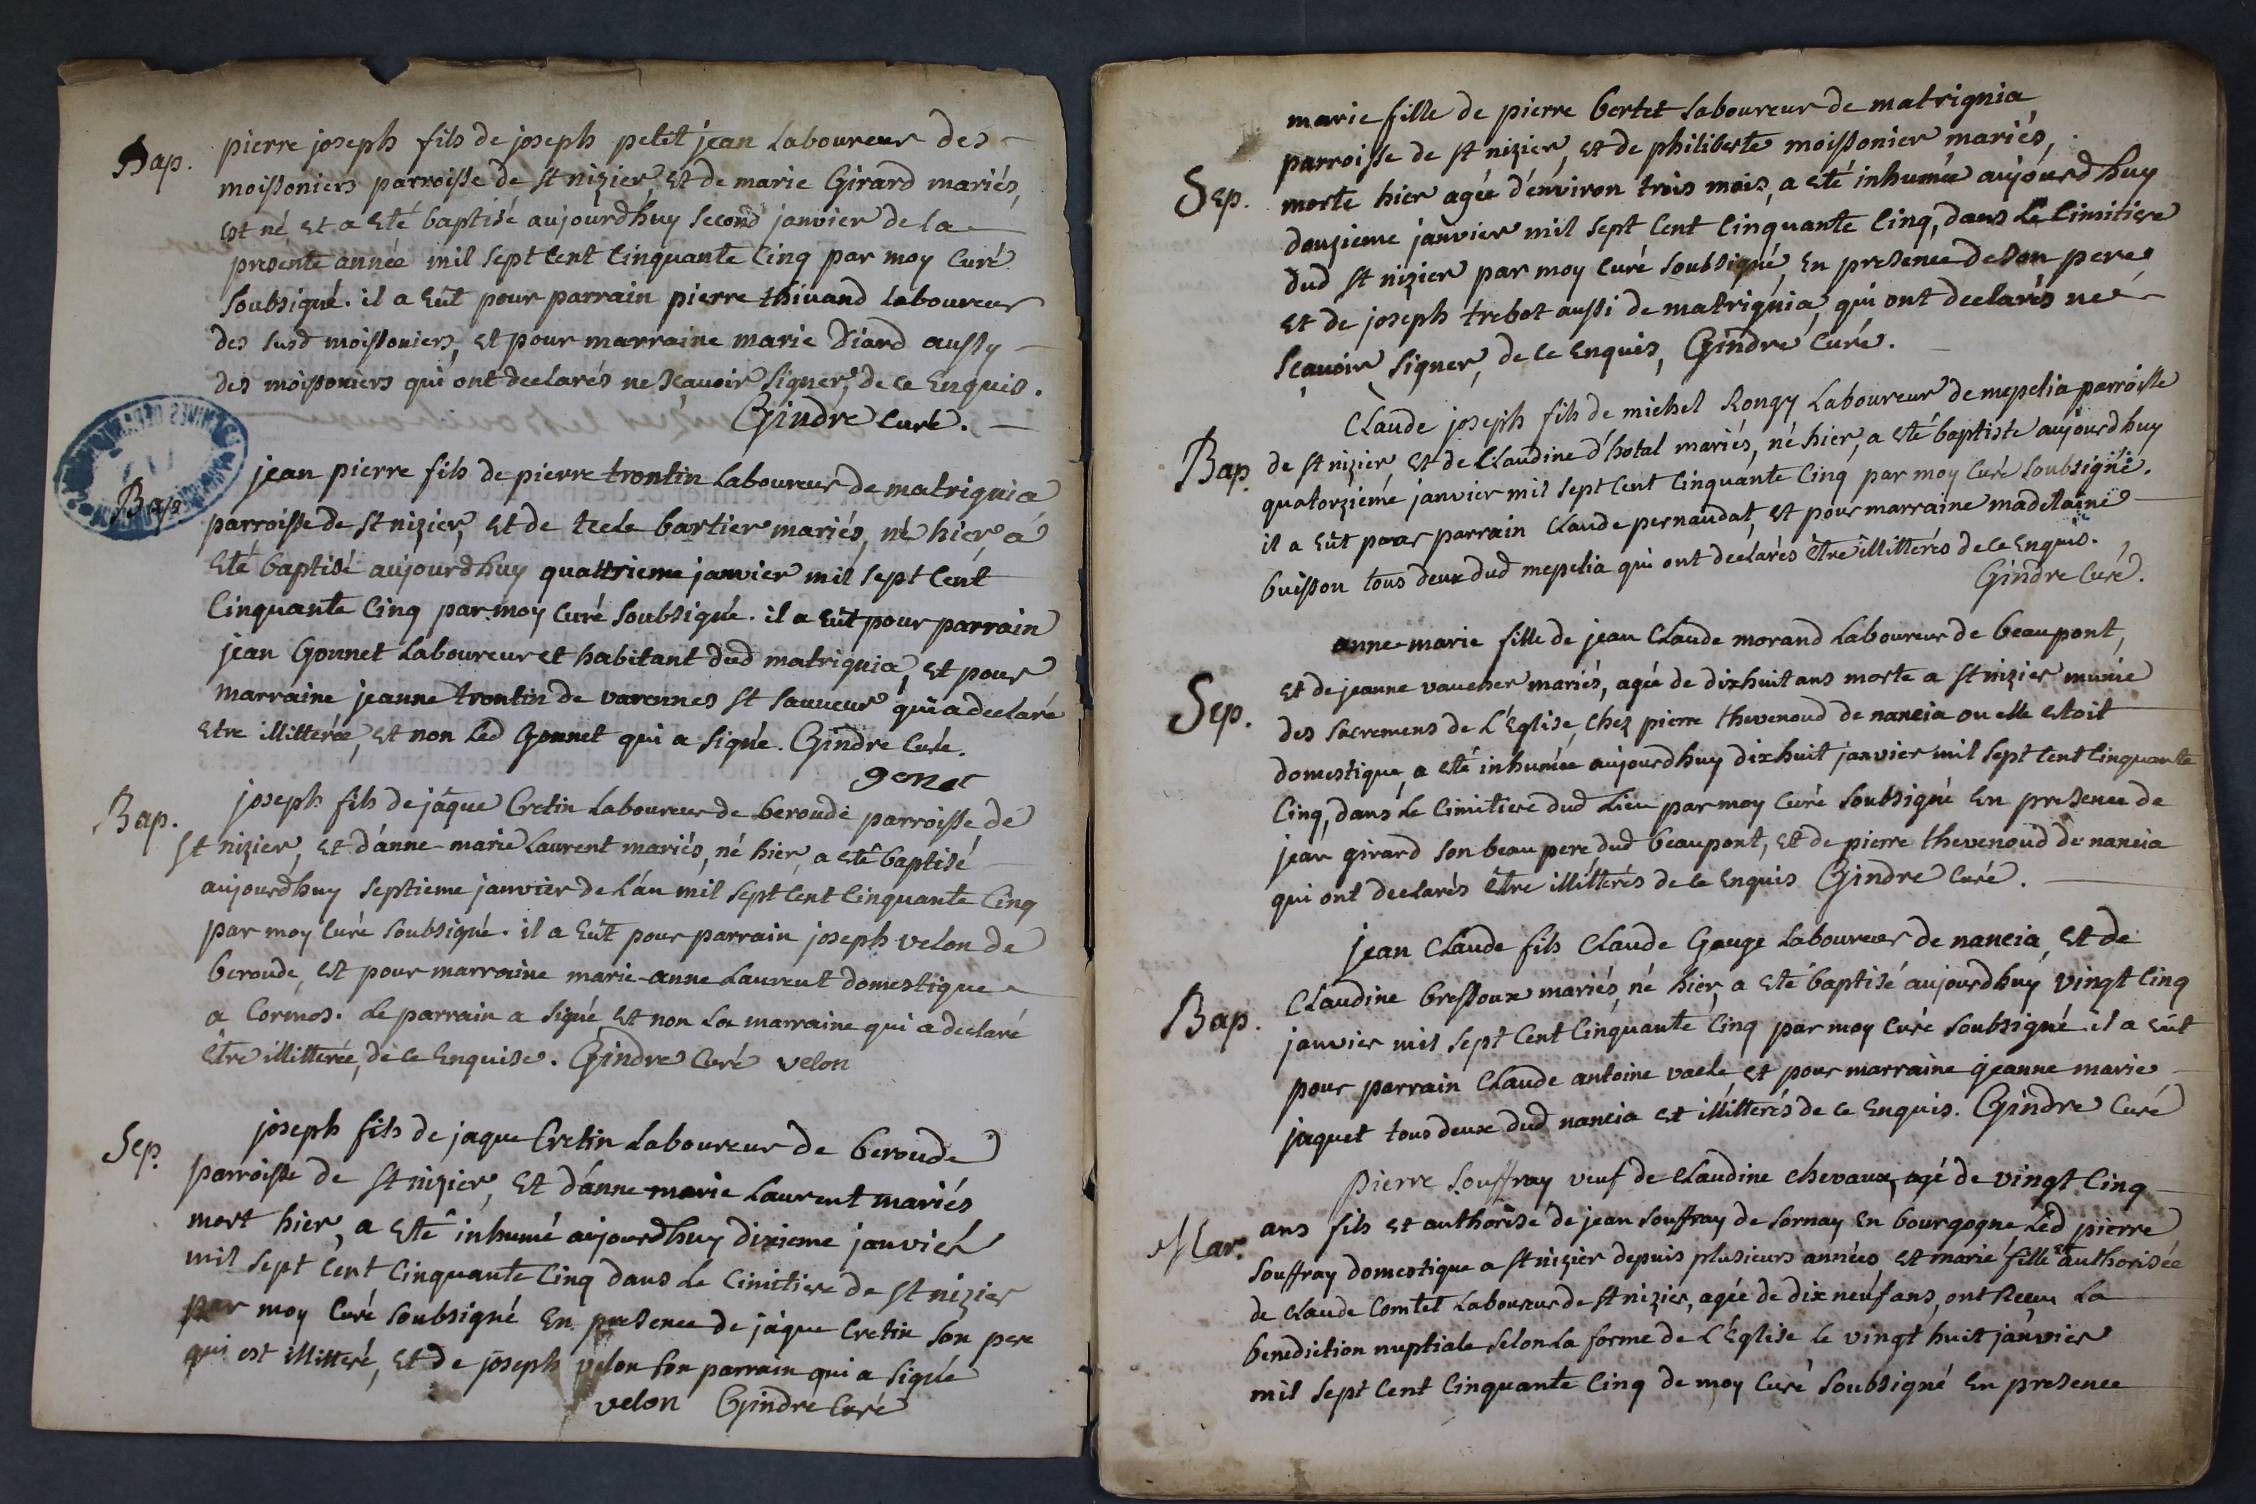 Bap. pierre joseph fils de joseph petet jean Laboureur des
moissoniers parroisse de st nizier, et de marie Girard mariés,
est né et a eté baptisé aujourdhuy second janvier de la
presente année mil sept cent cinquante cinq par moy curé
soubsigné. il a eût pour parrain pierre thivand laboureur
des susd moissoniers, et pour marraine marie Diard aussy
des moissoniers qui ont declarés ne sçavoir signer, de ce enquis.
Gindre curé.
Bap jean pierre fils de pierre trontin Laboureur de matrignia
parroisse de st nizier, et de tecle bartier mariés, né hier, a
eté baptisé aujourdhuy quattrieme janvier mil sept cent
cinquante cinq par moy curé soubsigné. il a eût pour parrain
jean Gonnet Laboureur et habitant dud matrignia, et pour
marraine jeanne trontin de varennes st sauveur qui a declaré
etre illitterée, et non led Gonnet qui a signé. Gindre curé.
gonet
Bap. joseph fils de jâque Cretin Laboureur de beroude parroisse de
st nizier, et d'anne-marie Laurent mariés, né hier, a eté baptisé
aujourdhuy septieme janvier de l'an mil sept cent cinquante cinq
par moy curé soubsigné. il a eût pour parrain joseph velon de
beroude, et pour marraine marie-anne Laurent domestique
a Cormos. le parrain a signé, et non La marraine qui a declaré
être illitterée, de ce enquise. Gindre Curé velon
Sep. joseph fils de jaque Cretin Laboureur de beroude
parroisse de st nizier, et d'anne-marie Laurent mariés
mort hier, a eté inhumé aujourdhuy dixieme janvier
mil sept cent cinquante cinq dans le cimitiere de st nizier
par moy curé soubsigné en presence de jâque cretin son pere
qui est illitteré, et de joseph velon son parrain qui a signé
velon Gindre Curé
marie fille de pierre bertet Laboureur de matrignia
parroisse de st nizier, et de philiberte moissonier mariés,
Sep. morte hier agée d'environ trois mois, a eté inhumée aujourdhuy
douzieme janvier mil sept cent cinquante cinq, dans Le Cimitiere
dud st nizier par moy curé soubsigné, en presence de son pere
et de joseph trebot aussi de matrignia, qui ont declarés ne
sçavoir signer, de ce enquis, Gindré curé.
Claude joseph fils de michel Rongy Laboureur de mepelia parroisse
Bap. de st nizier, et de Claudine d'hotal mariés, né hier, a eté baptiste aujourdhuy
quatorzieme janvier mil sept cent cinquante cinq par moy curé soubsigné.
il a eût pour parrain claude pernaudat, et pour marraine madelaine
buisson tous deux dud mepelia qui ont declarés être illitterés de ce enquis.
Gindre Curé.
anne-marie fille de jean Claude morand Laboureur de beaupont,
Sep. et de jeanne vaucher mariés, agée de dixhuit ans morte a st nizier munie
des sacremens de L'Eglise, chez pierre thevenoud de nancia ou elle etoit
domestique, a eté inhumée aujourdhuy dixhuit janvier mil sept cent cinquante
cinq, dans le cimitiere dud Lieu par moy curé soubsigné en presence de
jean girard son beau pere dud beaupont, et de pierre thevenoud de nancia
qui ont declarés être illitterés de ce enquis Gindre curé.
jean Claude fils Claude Gauge Laboureur de nancia, et de
Bap. Claudine bressoux mariés, né hier, a eté baptisé aujourdhuy vingt cinq
janvier mil sept cent cinquante cinq par moy curé soubsigné. il a eût
pour parrain Claude antoine vaele, et pour marraine jeanne marie
jaquet tous deux dud nancia et illitterés de ce enquis. Gindre Curé
Pierre souffray veuf de claudine chevaux, agé de vingt cinq
Mar. ans fils et authorisé de jean souffray de sornay en bourgogne led pierre
souffray domestique a st nizier depuis plusieurs années et marie fille et authorisée
de claude Comtet Laboureur de st nizier, agée de dix neuf ans, ont Receu La
benediction nuptiale selon la forme de L'Eglise le vingt huit janvier
mil sept cent cinquante cinq de moy curé soubsigné en presence